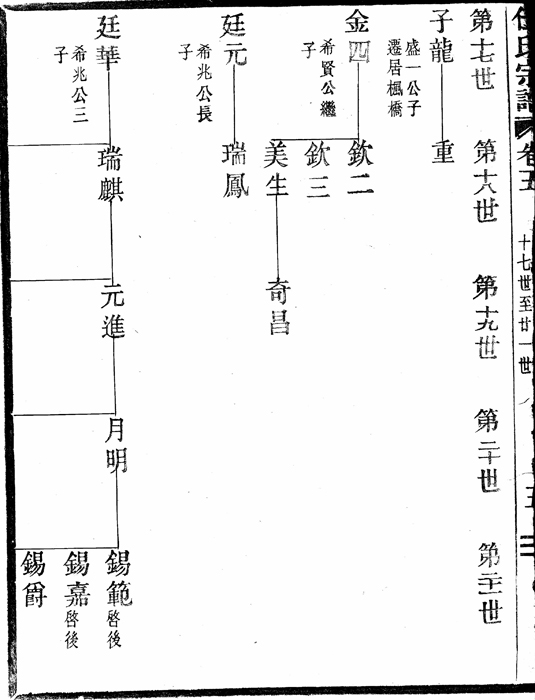 氏宗譜
卷五
十七世至廿一世
第十七世
第十八世
第十九世
第二十世
第二十一世
子龍
盛一公子
遷居楓橋
重
金四
希賢公繼
子
欽二
欽三
美生
奇昌
廷元
希兆公長
子
瑞鳳
廷華
希兆公三
子
瑞麒
元進
月明
錫範啓後
錫嘉啓後
錫爵